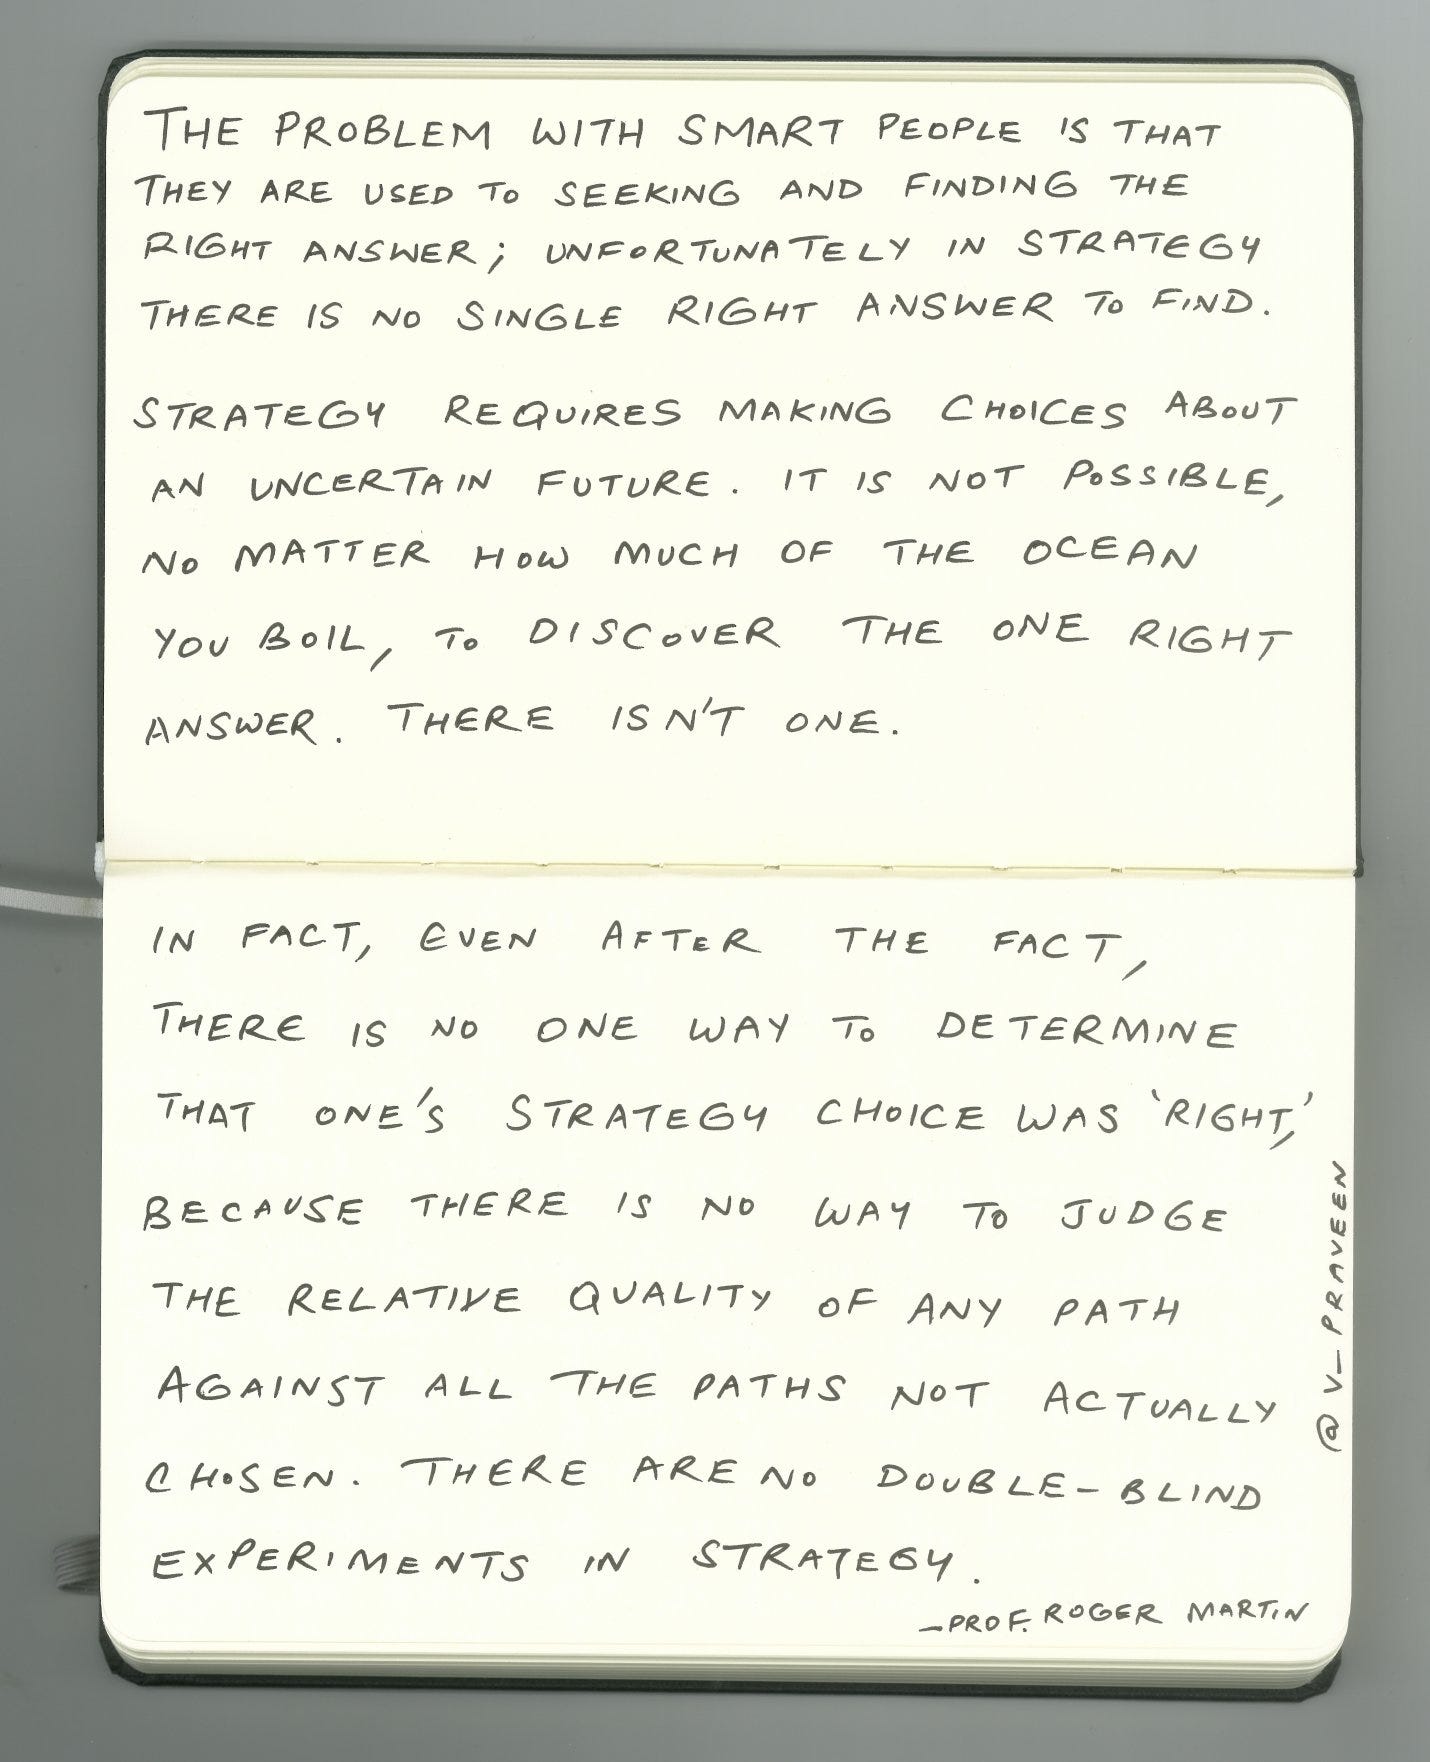 THE PROBLEM WITH SMART PEOPLE IS THAT
THEY ARE USED TO SEEKING AND FINDING THE
RIGHT ANSWER; UNFORTUNATELY IN STRATEGY
THERE IS NO SINGLE RIGHT ANSWER TO FIND.
STRATEGY REQUIRES MAKING CHOICES ABOUT
AN UNCERTAIN FUTURE. IT IS NOT POSSIBLE,
NO MATTER HOW MUCH OF THE OCEAN
YOU BOIL, TO DISCOVER THE ONE RIGHT
ANSWER. THERE ISN'T ONE.
IN FACT, EVEN AFTER THE FACT,
THERE IS NO ONE WAY TO DETERMINE
THAT ONE'S STRATEGY CHOICE WAS 'RIGHT,'
BECAUSE THERE IS NO WAY TO JUDGE
THE RELATIVE QUALITY OF ANY PATH
AGAINST ALL THE PATHS NOT ACTUALLY
CHOSEN. THERE ARE NO DOUBLE-BLIND
EXPERIMENTS IN STRATEGY.
-PROF. ROGER MARTIN
@V_PRAVEEN